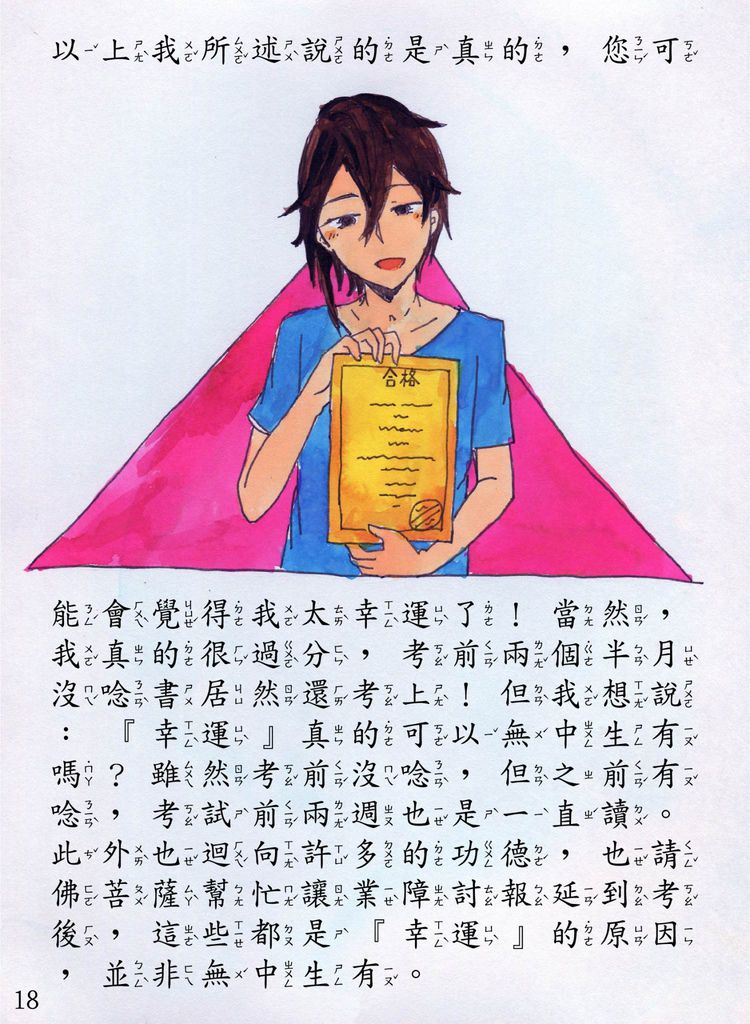 以上我所述說的是真的，您可
合格
能會覺得我太幸運了！當然，
我真的很過分，考前兩個半月
沒唸書居然還考上！但我想說
：『幸運』真的可以無中生有
嗎？雖然考前沒唸，但之前有
唸，考試前兩週也是一直讀。
此外也迴向許多的功德，也請
佛菩薩幫忙讓業障討報延到考
後，這些都是『幸運』的原因
，並非無中生有。
18